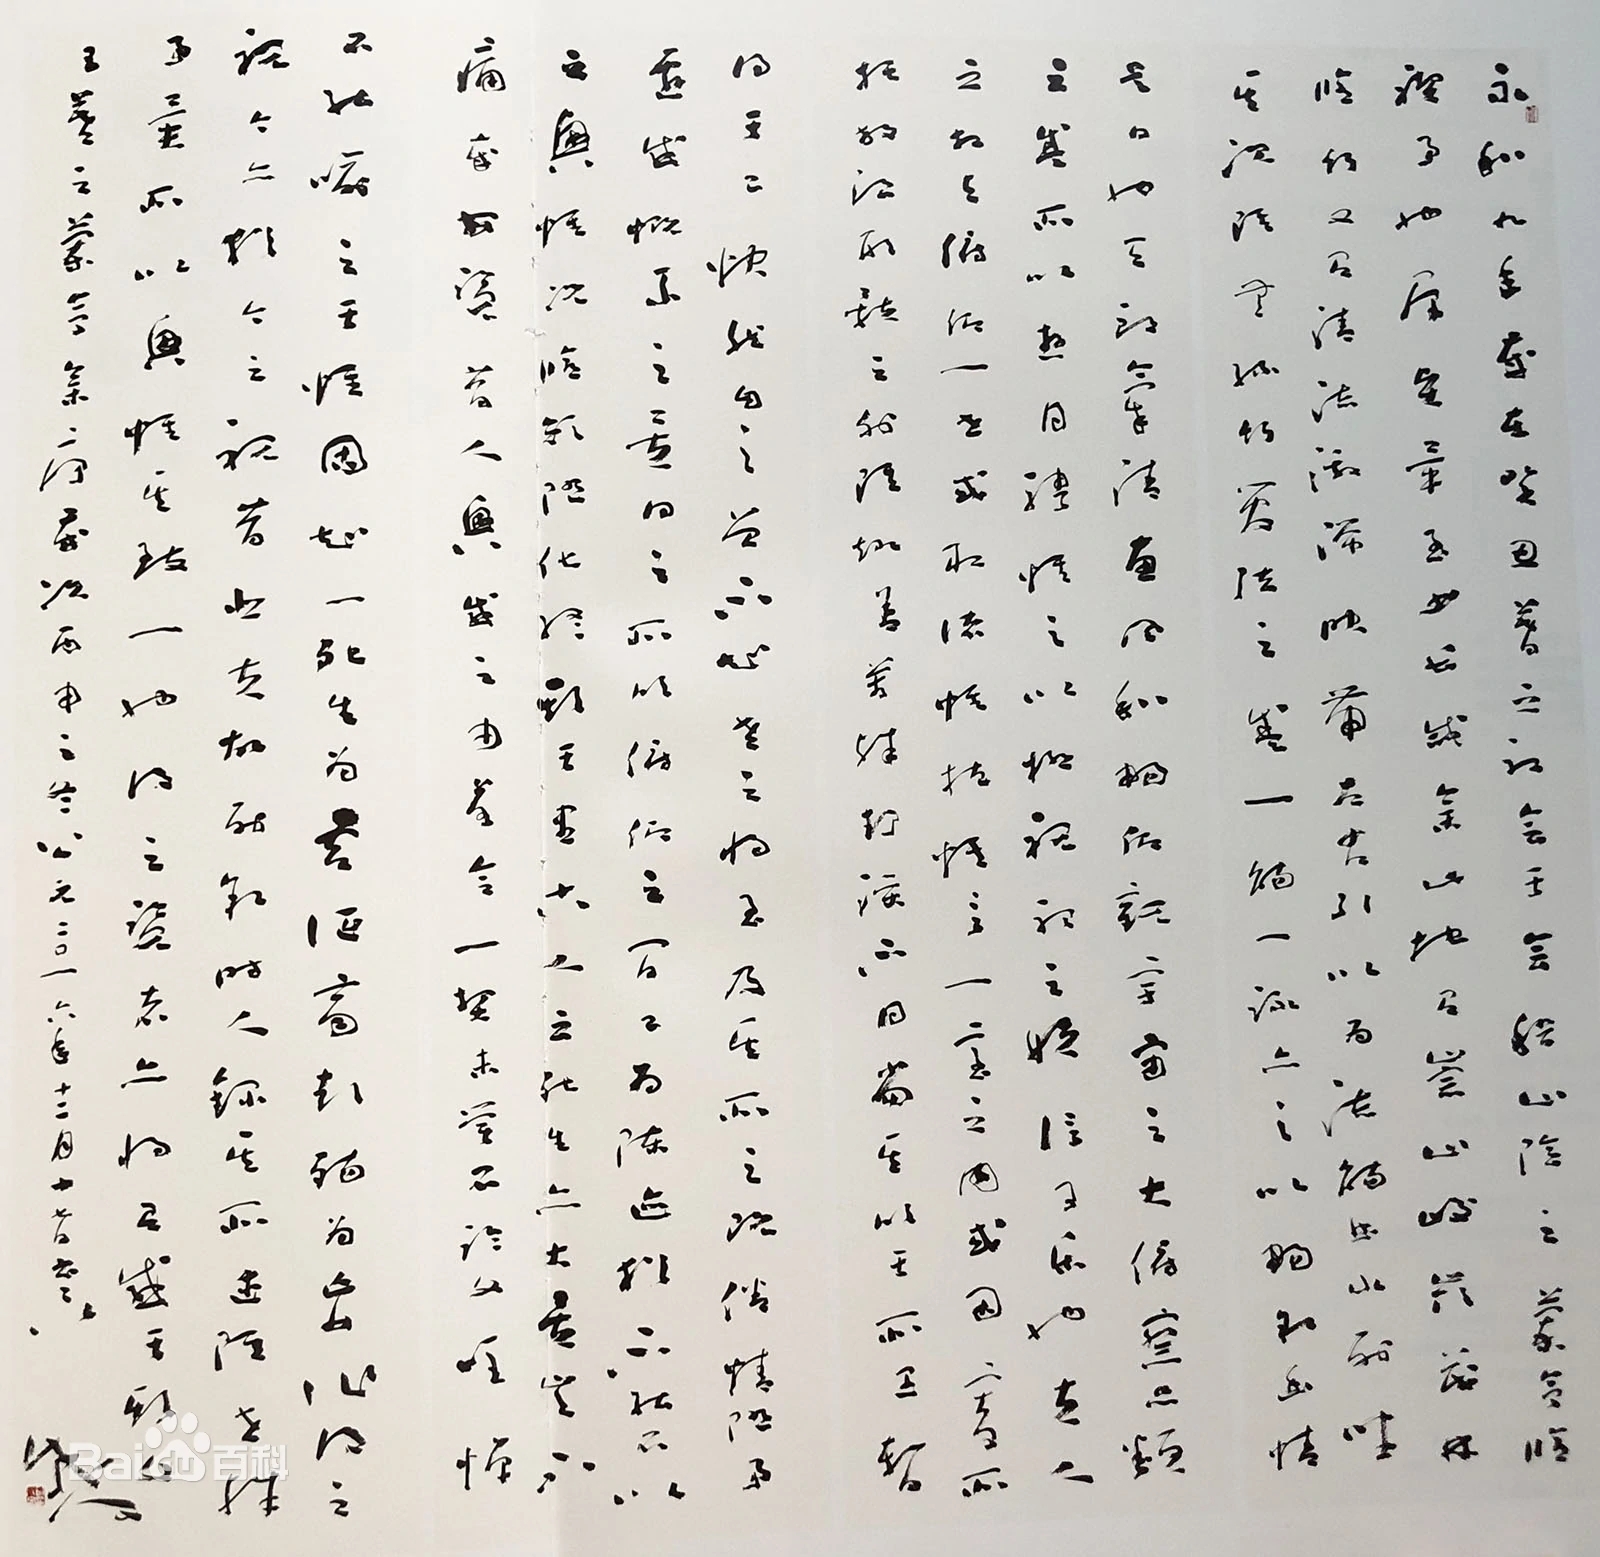 永和九年歲在癸丑暮春之初會于會稽山陰之蘭亭脩
禊事也群賢畢至少長咸集此地有崇山峻領茂林
脩竹又有清流激湍映帶左右引以為流觴曲水列坐
其次雖無絲竹管弦之盛一觴一詠亦足以暢敘幽情
是日也天朗氣清惠風和暢仰觀宇宙之大俯察品類
之盛所以遊目騁懷足以極視聽之娛信可樂也夫人
之相與俯仰一世或取諸懷抱悟言一室之內或因寄所
託放浪形骸之外雖趣舍萬殊靜躁不同當其欣於所遇暫
得於己快然自足曾不知老之將至及其所之既倦情隨事
遷感慨係之矣向之所欣俯仰之間已為陳迹猶不能不以
之興懷況脩短隨化終期於盡古人云死生亦大矣豈不
痛哉每攬昔人興感之由若合一契未嘗不臨文嗟悼
不能喻之於懷固知一死生為虛誕齊彭殤為妄作後之
視今亦猶今之視昔悲夫故列敘時人錄其所述雖世殊
事異所以興懷其致一也後之攬者亦將有感於斯文
王羲之蘭亭集序歲次丙申之冬公元二〇一六年十二月十七日書
Baidu百科